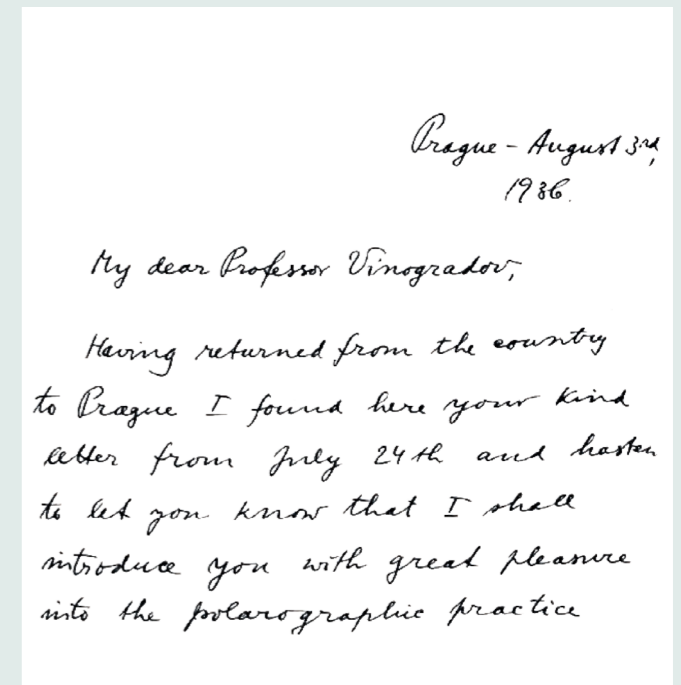 Prague - August 3rd,
1936.
My dear Professor Vinogradov,
Having returned from the country
to Prague I found here your kind
letter from July 24th and hasten
to let you know that I shall
introduce you with great pleasure
into the polarographic practice